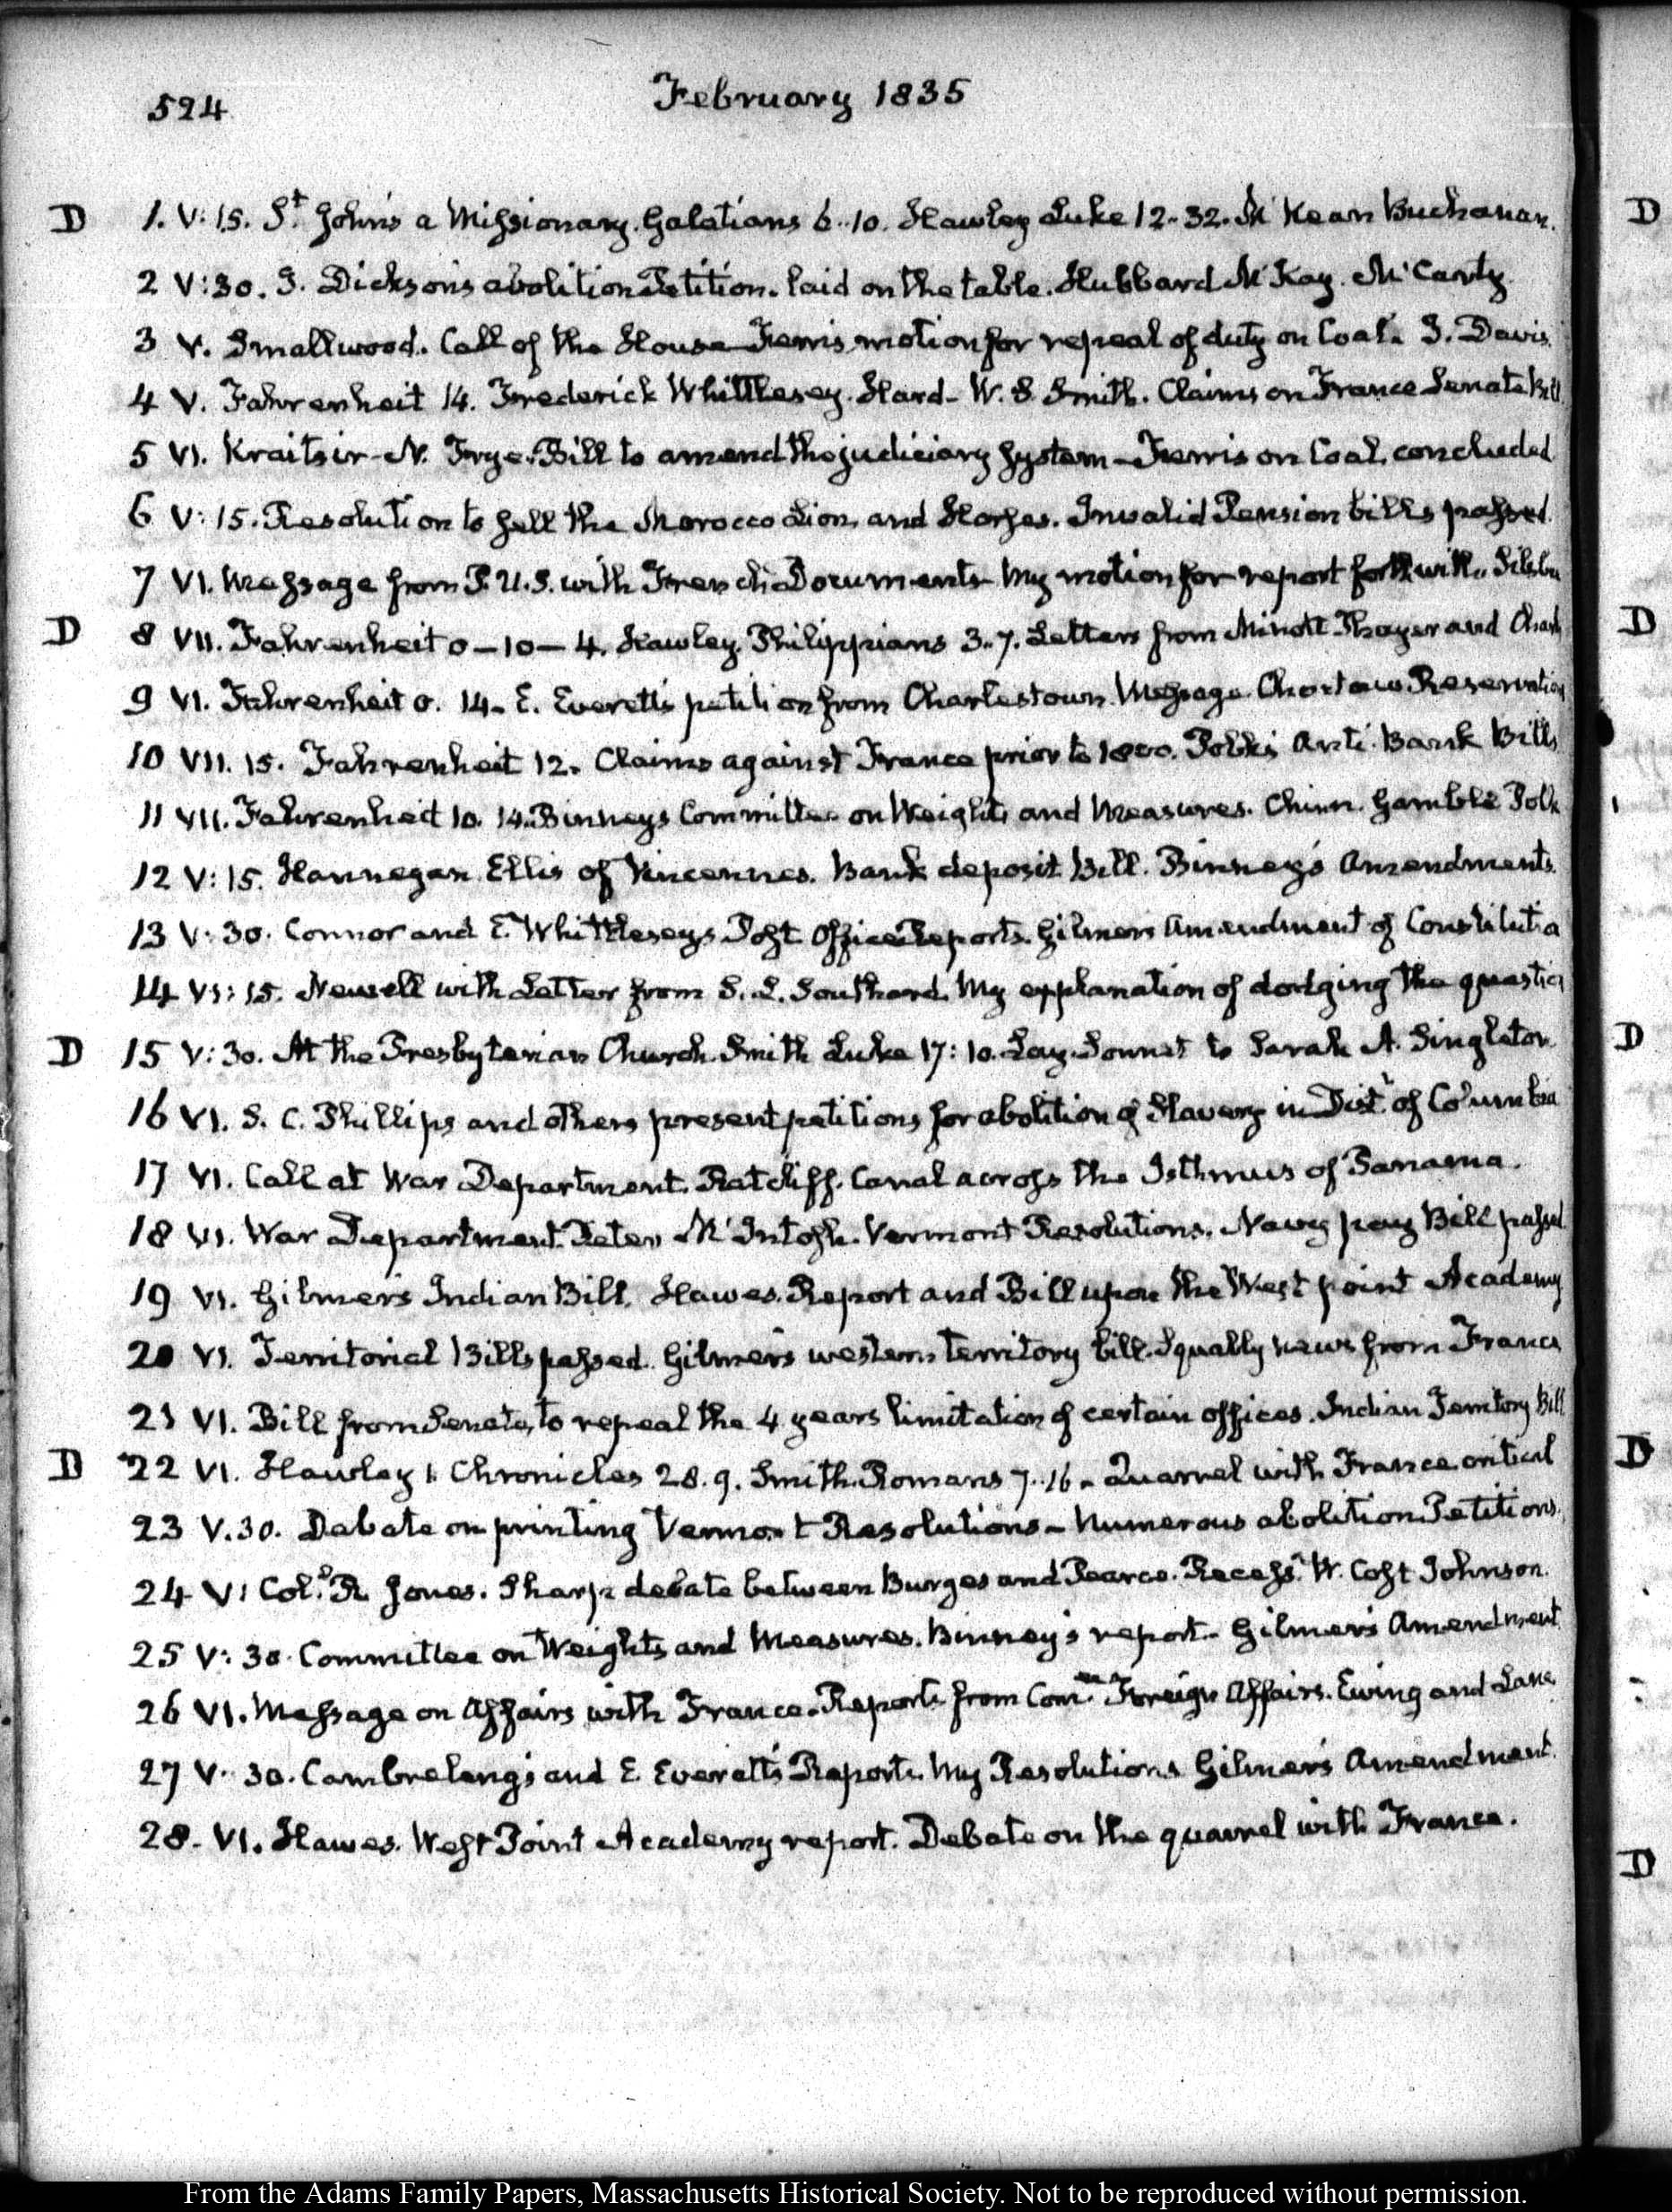 524
February 1835
D 1. V:15. St. John's a Missionary. Galatians 6..10. Hawley Luke 12-32. McKean Buchanan.
2 V:30. J. Dickson's abolition Petition. laid on the table. Hubbard McKay. McCarty
3 V. Smallwood. Call of the House Ferris motion for repeal of duty on Coal. J. Davis.
4 V. Fahrenheit 14. Frederick Whittlesey. Hard - W. S. Smith. Claims on France Senate Bill
5 VI. Kraitsir - N. Frye. Bill to amend the judiciary System - Ferris on Coal, concluded
6 V:15. Resolution to sell the Morocco Lion, and Horses. Invalid Pension bills passed.
7 VI. Message from P.U.S. with French Documents - My motion for report forthwith. Silsbee
D 8 VII. Fahrenheit 0 - 10 - 4. Hawley. Philippians 3..7. Letters from Minott Thayer and Charles
9 VI. Fahrenheit 0. 14. E. Everett's petition from Charlestown. Message. Choctaw Reservation
10 VII. 15. Fahrenheit 12. Claims against France prior to 1800. Polk's Anti-Bank Bills
11 VII. Fahrenheit 10. 14. Binney's Committee on Weights and Measures. Chinn. Gamble Polk
12 V:15. Hannegan. Ellis of Vincennes. Bank deposit Bill. Binney's Amendments.
13 V:30. Connor and E. Whittlesey's Post Office Reports. Gilmer's Amendment of Constitutio
14 VI:15. Newell with Letter from S. L. Southard. My explanation of dodging the question
D 15 V:30. At the Presbyterian Church. Smith Luke 17:10. Lay. Sonnet to Sarah A. Singleton.
16 VI. S. C. Phillips and others present petitions for abolition of Slavery in Distt. of Columbia
17 VI. Call at War Department. Ratcliff. Canal across the Isthmus of Panama.
18 VI. War Department. Peter McIntosh. Vermont Resolutions. Navy pay Bill passed
19 VI. Gilmer's Indian Bill. Hawes. Report and Bill upon the West point Academy
20 VI. Territorial Bills passed. Gilmer's western territory bill. Squally news from France
21 VI. Bill from Senate, to repeal the 4 years limitation of certain offices. Indian Territory Bill
D 22 VI. Hawley 1. Chronicles 28. 9. Smith. Romans 7..16 - Quarrel with France critical
23 V.30. Debate on printing Vermont Resolutions - Numerous abolition Petitions.
24 V: Col. R Jones. Sharp debate between Burges and Pearce. Recess. W. Cost Johnson.
25 V:30. Committee on Weights and Measures. Binney's report - Gilmer's Amendment
26 VI. Message on Affairs with France. Reports from Comee. Foreign Affairs. Ewing and Lane
27 V:30. Cambreleng's and E. Everett's Reports. My Resolutions. Gilmer's Amendment.
28. VI. Hawes. West Point Academy report. Debate on the quarrel with France.
From the Adams Family Papers, Massachusetts Historical Society. Not to be reproduced without permission.